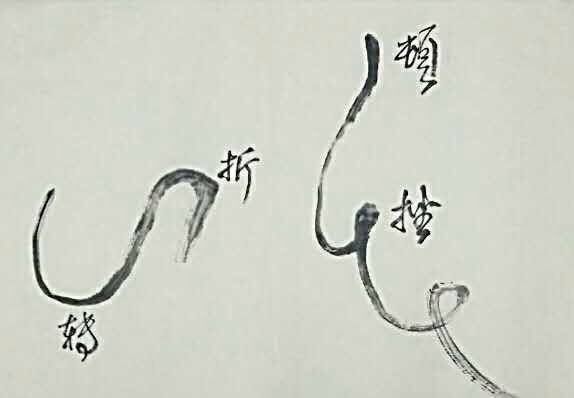 頓
挫
折
轉